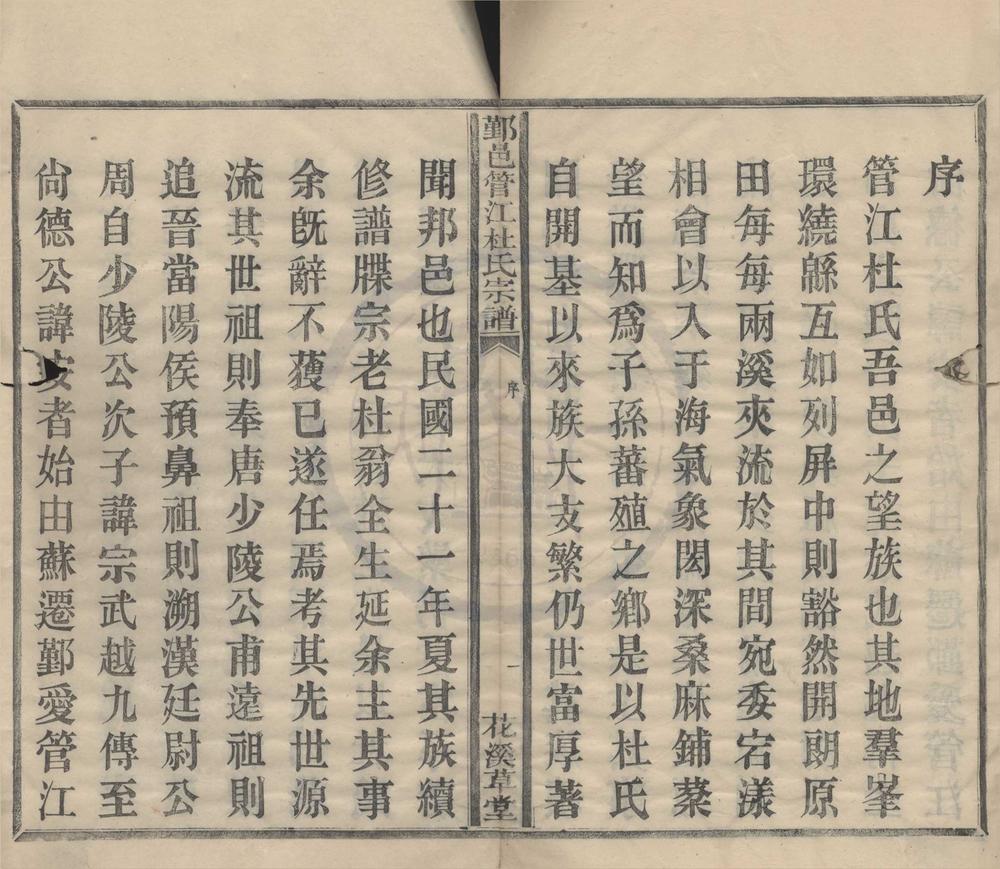 序
管江杜氏吾邑之望族也其地羣峯
環繞緜互如列屏中則豁然開朗原
田每每兩溪夾流於其間宛委宕漾
相會以入于海氣象閎深桑麻鋪棻
望而知爲子孫蕃殖之鄉是以杜氏
自開基以來族大支繁仍世富厚著
鄞邑管江杜氏宗譜
序
一
花溪草堂
聞邦邑也民國二十一年夏其族續
修譜牒宗老杜翁全生延余主其事
余旣辭不獲已遂任焉考其先世源
流其世祖則奉唐少陵公甫遠祖則
追晉當陽侯預鼻祖則溯漢廷尉公
周自少陵公次子諱宗武越九傳至
尙德公諱安者始由蘇遷鄞愛管江